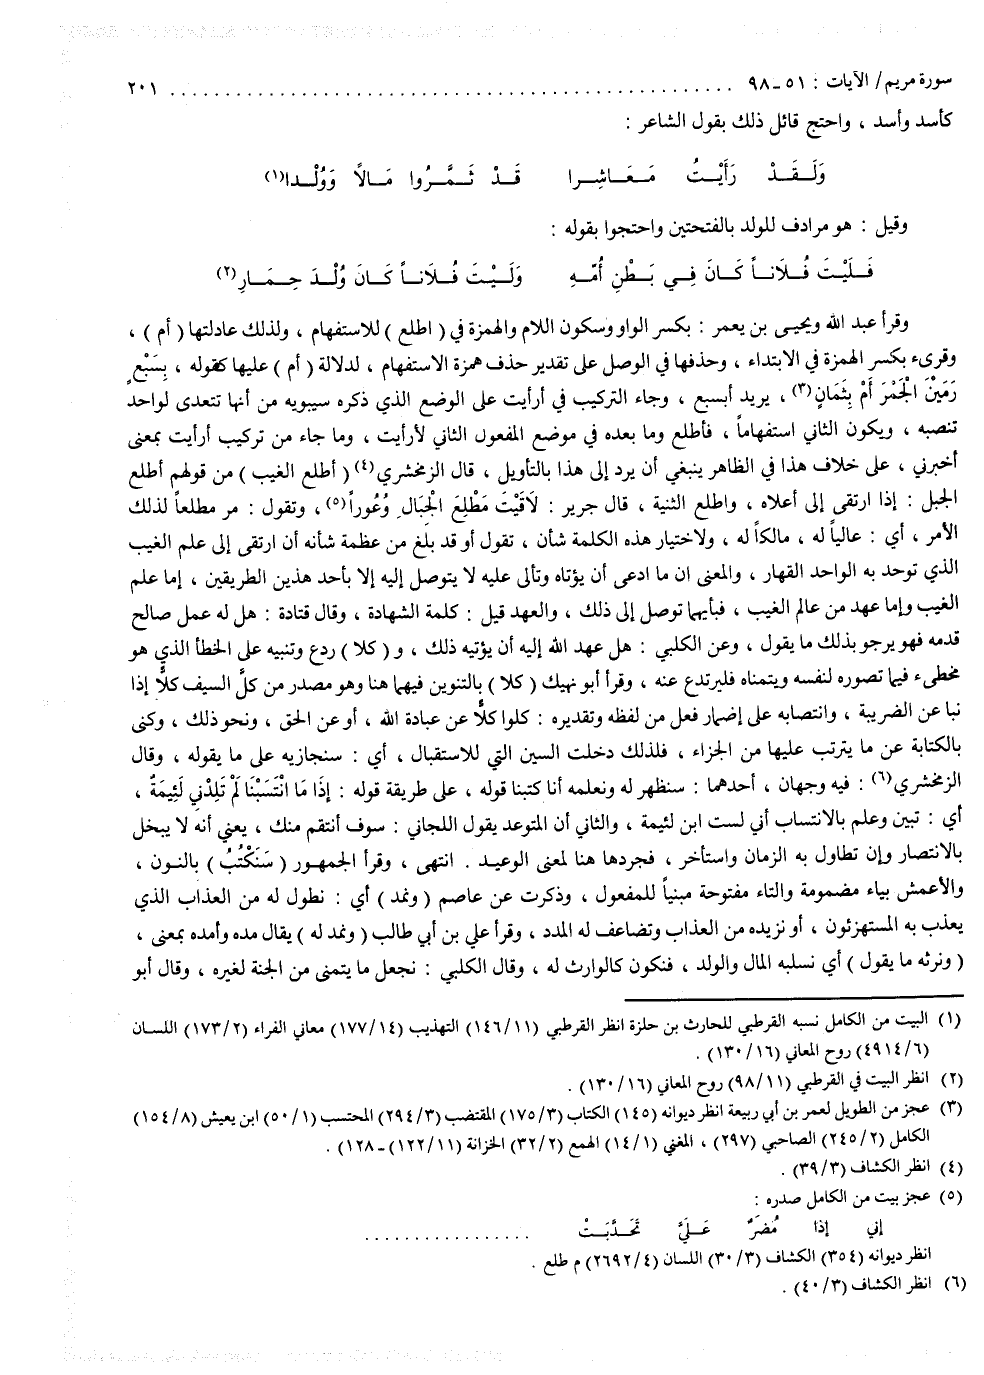 سورة مريم/ الآيات : ٥١ـ٩٨ ........................................................ ٢٠١
كأسد وأسد ، واحتج قائل ذلك بقول الشاعر :
وَلَـقَـدْ رَأَيْـتُ مَـعَـاشِـرا قَـدْ ثَـمَّـرُوا مَـالاً وَوُلْـدا(١)
وقيل : هو مرادف للولد بالفتحتين واحتجوا بقوله :
فَـلَيْـتَ فُـلَانـاً كَـانَ فِـي بَـطْنِ أُمِّـهِ وَلَـيْـتَ فُـلَانـاً كَـانَ وُلْـدَ حِـمَـارِ(٢)
وقرأ عبد الله ويحيـى بن يعمر : بكسر الواو وسكون اللام والهمزة في ( اطلع ) للاستفهام ، ولذلك عادلتها ( أم ) ،
وقرىء بكسر الهمزة في الابتداء ، وحذفها في الوصل على تقدير حذف همزة الاستفهام ، لدلالة ( أم ) عليها كقوله ، بِسَبْعٍ
رَمَيْنَ الْجَمْرَ أَمْ بِثَمَانٍ(٣) ، يريد أبسبع ، وجاء التركيب في أرأيت على الوضع الذي ذكره سيبويه من أنها تتعدى لواحد
تنصبه ، ويكون الثاني استفهاماً ، فأطلع وما بعده في موضع المفعول الثاني لأرأيت ، وما جاء من تركيب أرأيت بمعنى
أخبرني ، على خلاف هذا في الظاهر ينبغي أن يرد إلى هذا بالتأويل ، قال الزمخشري(٤) ( أطلع الغيب ) من قولهم أطلع
الجبل : إذا ارتقى إلى أعلاه ، واطلع الثنية ، قال جرير : لَاقَيْتَ مَطْلِعَ الْجِبَالِ وُعُوراً(٥) ، وتقول : مر مطلعاً لذلك
الأمر ، أي : عالياً له ، مالكاً له ، ولاختيار هذه الكلمة شأن ، تقول أو قد بلغ من عظمة شأنه أن ارتقى إلى علم الغيب
الذي توحد به الواحد القهار ، والمعنى ان ما ادعى أن يؤتاه وتألى عليه لا يتوصل إليه إلا بأحد هذين الطريقين ، إما علم
الغيب وإما عهد من عالم الغيب ، فبأيهما توصل إلى ذلك ، والعهد قيل : كلمة الشهادة ، وقال قتادة : هل له عمل صالح
قدمه فهو يرجو بذلك ما يقول ، وعن الكلبي : هل عهد الله إليه أن يؤتيه ذلك ، و ( كلا ) ردع وتنبيه على الخطأ الذي هو
مخطىء فيما تصوره لنفسه ويتمناه فليرتدع عنه ، وقرأ أبو نهيك ( كلا ) بالتنوين فيهما هنا وهو مصدر من كلَّ السيف كلًّا إذا
نبا عن الضريبة ، وانتصابه على إضمار فعل من لفظه وتقديره : كلوا كلًّا عن عبادة الله ، أو عن الحق ، ونحو ذلك ، وكنى
بالكتابة عن ما يترتب عليها من الجزاء ، فلذلك دخلت السين التي للاستقبال ، أي : سنجازيه على ما يقوله ، وقال
الزمخشري(٦) : فيه وجهان ، أحدهما : سنظهر له ونعلمه أنا كتبنا قوله ، على طريقة قوله : إِذَا مَا انْتَسَبْنَا لَمْ تَلِدْنِي لَئِيمَةٌ ،
أي : تبين وعلم بالانتساب أني لست ابن لئيمة ، والثاني أن المتوعد يقول اللجاني : سوف أنتقم منك ، يعني أنه لا يبخل
بالانتصار وإن تطاول به الزمان واستأخر ، فجردها هنا لمعنى الوعيد . انتهى ، وقرأ الجمهور ( سَنَكْتُبُ ) بالنـون ،
والأعمش بياء مضمومة والتاء مفتوحة مبنياً للمفعول ، وذكرت عن عاصم ( ونمد ) أي : نطول له من العذاب الذي
يعذب به المستهزئون ، أو نزيده من العذاب وتضاعف له المدد ، وقرأ علي بن أبي طالب ( ونمد له ) يقال مده وأمده بمعنى ،
( ونرثه ما يقول ) أي نسلبه المال والولد ، فنكون كالوارث له ، وقال الكلبي : نجعل ما يتمنى من الجنة لغيره ، وقال أبو
(١) البيت من الكامل نسبه القرطبي للحارث بن حلزة انظر القرطبي (١٤٦/١١) التهذيب (١٧٧/١٤) معاني الفراء (١٧٣/٢) اللسان
(٤٩١٤/٦) روح المعاني (١٣٠/١٦) .
(٢) انظر البيت في القرطبي (٩٨/١١) روح المعاني (١٣٠/١٦) .
(٣) عجز من الطويل لعمر بن أبي ربيعة انظر ديوانه (١٤٥) الكتاب (١٧٥/٣) المقتضب (٢٩٤/٣) المحتسب (٥٠/١) ابن يعيش (١٥٤/٨)
الكامل (٢٤٥/٢) الصاحبي (٢٩٧) ، المغني (١٤/١) الهمع (٣٢/٢) الخزانة (١٢٢/١١) ـ ١٢٨) .
(٤) انظر الكشاف (٣٩/٣) .
(٥) عجز بيت من الكامل صدره :
إني إذا مُضَرٌ عَلَيَّ تَحَدَّبَتْ .................
انظر ديوانه (٣٥٤) الكشاف (٣٠/٣) اللسان (٢٦٩٢/٤) م طلع .
(٦) انظر الكشاف (٤٠/٣) .